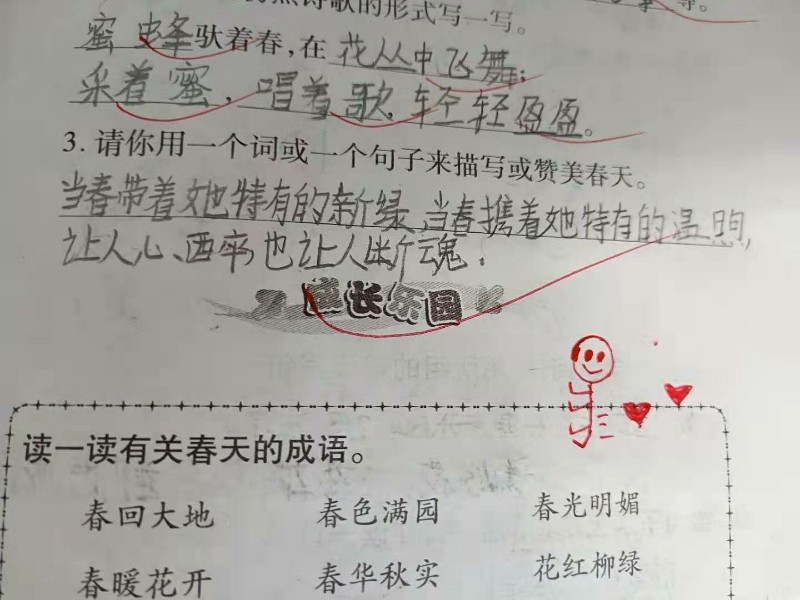 诗歌的形式写一写。
蜜蜂驮着春,在花丛中飞舞;
采着蜜,唱着歌,轻轻盈盈。
3. 请你用一个词或一个句子来描写或赞美春天。
当春带着她特有的新绿,当春携着她特有的温煦,
让人心、西卒也让人断魂。
成长乐园
读一读有关春天的成语。
春回大地 春色满园 春光明媚
春暖花开 春华秋实 花红柳绿